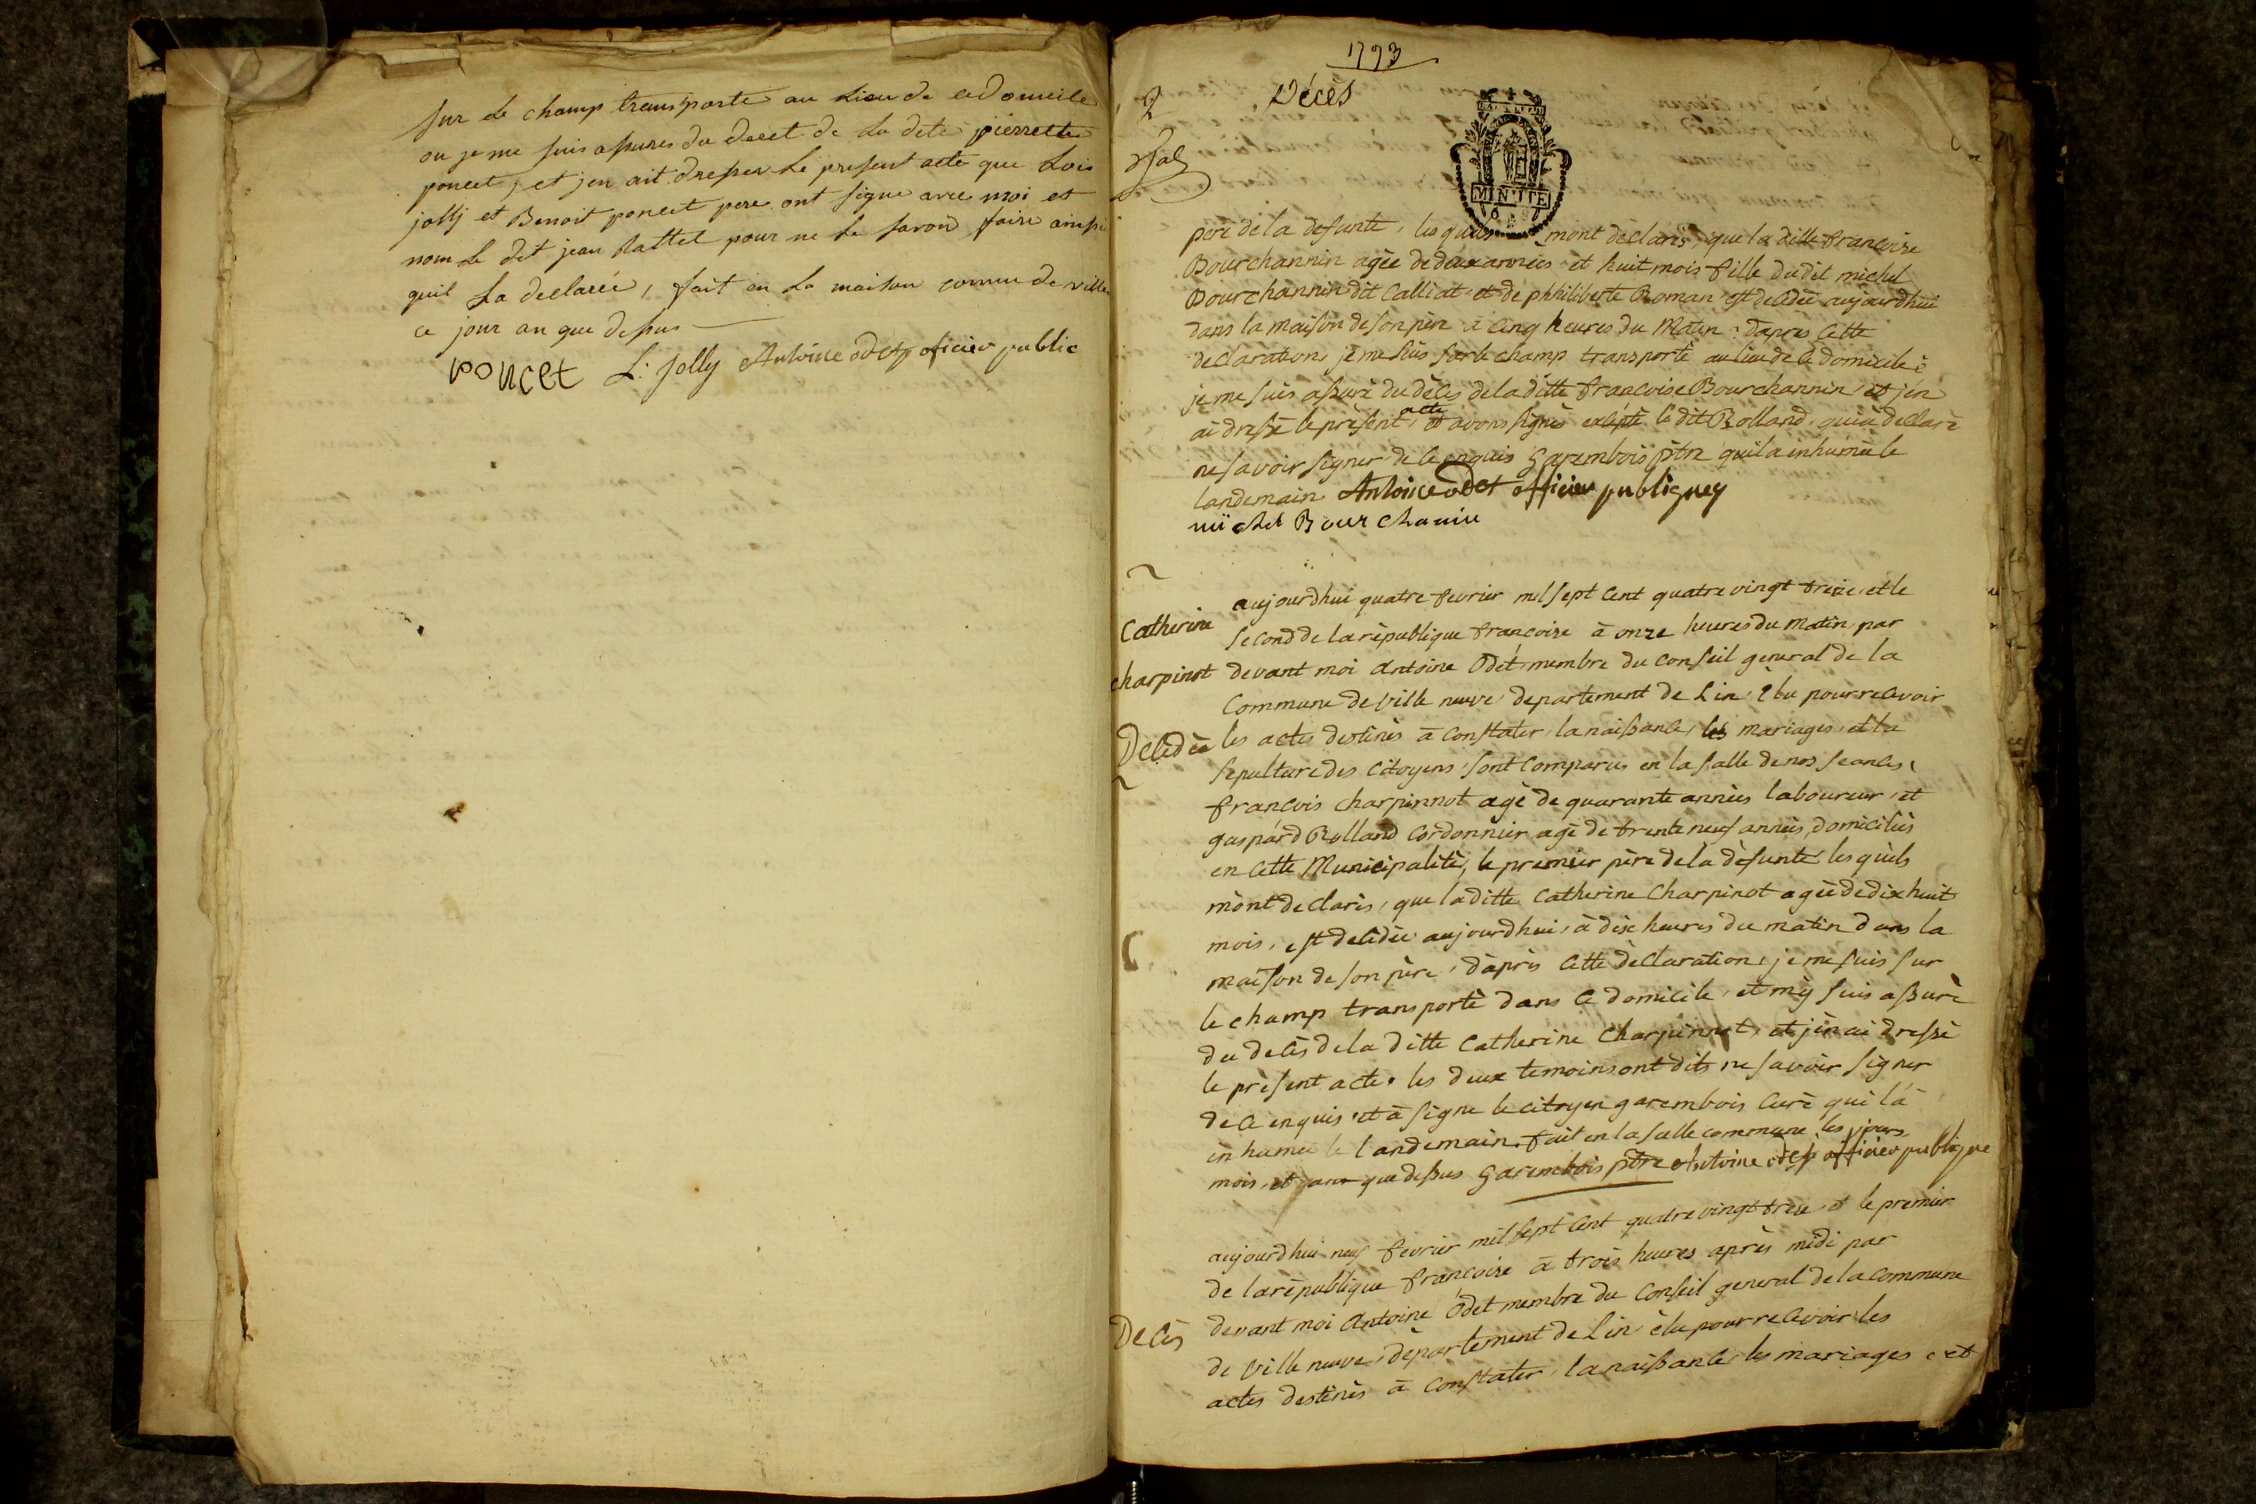 sur le champ transporté au Lieu de cedomicile
ou je me suis assures du decet de La dete pierrette
poncet, et jen ait dresser Le present acte que Lois
jollj et Benoit poncet pere ont signe avec moi et
nom Le dit jean Rattet pour ne Le savoir faire ainssi
quil La declareé, fait en La maison comune de ville
ce jour an que dessus
poncet L: Jolly Antoine odet oficier public
1793
Décès
2
MINUTE
père de la defunte, lesquels mont déclarés, que la ditte francoise
Bourchannin agée de deux années et huit mois fille du dit michel
Bourchannin dit Calliat et de phhiliberte Roman est décédée aujourdhui
dans la maison de son père à cinq heures du Matin : dapres cette
declaration, je me suis sur le champ transporté au lieu de ce domicile :
je me suis assuré du décès de la ditte francoise Bourchannin, et jén
ai dressé le présent acte et avons signés excepté le dit Rolland, qui a déclaré
ne savoir signer de ce enquis Garembois ptre qui la inhumée le
landemain Antoine odet officier publiquey
michel Bourchanin
aujourdhui quatre fevrier mil sept cent quatre vingt treize, et le
Catherine
second de la république francoise à onze heures du matin par
charpinot
devant moi Antoine Odet membre du conseil géneral de la
Commune de ville neuve departement de Lin élu pour recevoir
Décédée
les actes destinés à constater, la naissance, les mariages, et la
sepulture des citoyens, sont comparus en la salle de nos seances,
francois charpinnot agé de quarante années laboureur, et
gaspárd Rolland Cordonnier agé de trente neuf années, domiciliés
en cette Municipalité, le premier père de la défunte, lesquels
mont declarés, que la ditte Catherine Charpinot agée de dix huit
mois, est décédée aujourdhui, à dix heures du matin dans la
maison de son père, dáprés cette déclaration, je me suis sur
le champ transporté dans ce domicile, et my suis assuré
du decés de la ditte Catherine Charpinnot, et jén ai dressé
le présent acte. les deux temoins ont dits ne savoir signer
de ce enquis, et à signe le citoyen garembois Curé qui lá
inhumée le landemain. fait en la salle commune les jours,
mois, et an que dessus Garembois ptre Antoine odet officier publique
aujourdhui neuf fevrier mil sept cent quatre vingt treze et le premier
de la république francoise à trois heures après midi par
Decés
devant moi Antoine Odet membre du conseil general de la commune
de ville neuve, département de Lin élu pour recevoir les
actes destinés à constater, la naissance, les mariages, et